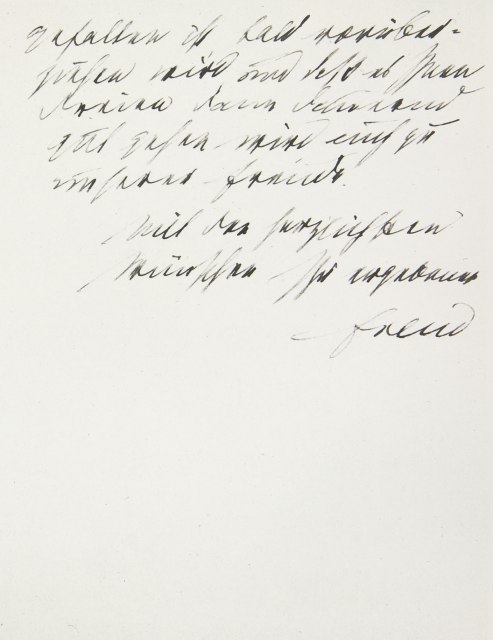 gefallen ist bald vorüber-
ziehen wird und daß es Ihnen
Dreien dann dauernd
gut gehen wird auch zu
unserer Freude.
Mit den herzlichsten
Wünschen Ihr ergebener
Freud